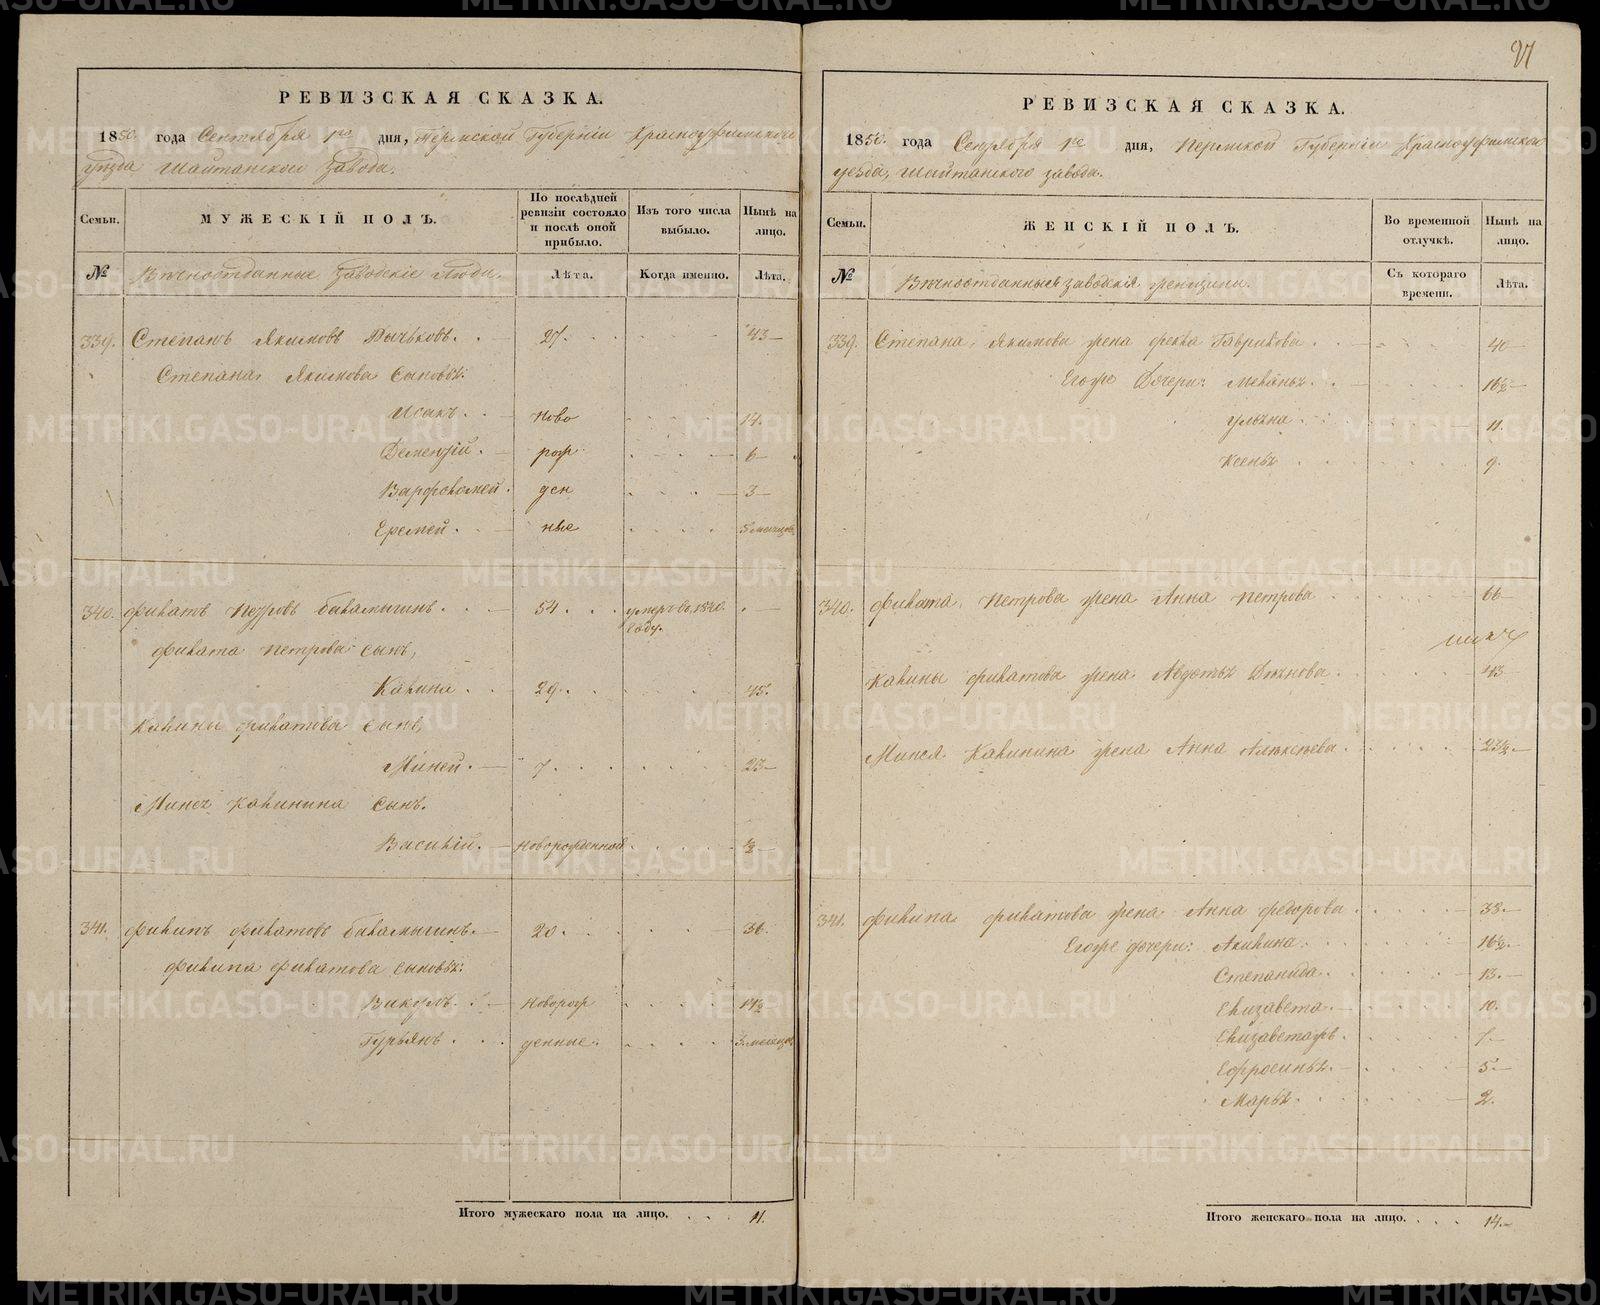 21
РЕВИЗСКАЯ СКАЗКА.
1850. года Сентября 1го дня, Пермской Губернiи Красноуфимскаго
уезда Шайтанскаго Завода.
Семьи. МУЖЕСКІЙ ПОЛЪ. По послѣдней ревизіи состояло и послѣ оной прибыло. Изъ того числа выбыло. Нынѣ на лицо.
№ Вѣчноотданные Заводскіе Люди. Лѣта. Когда именно. Лѣта.
339. Степанъ Якимовъ 27. 43
Степана Якимова Сыновья:
Исакъ. ново 14.
Дементій. рож 6
Варфоломей. ден 3
Еремей. ные 5 месяцовъ
340. Филатъ Петровъ Баламыгинъ. 54. умеръ въ 1840. году.
Филата Петрова Сынъ,
Калина 29. 45.
Калины Филатова Сынъ,
Миней. 7. 23
Минея Калинина Сынъ.
Василій. новорожденной ½
341. Филипъ Филатовъ Баламыгинъ. 20. 36.
Филипа Филатова Сыновья:
Викулъ. новорож 14½
Гурьянъ. денные. 5 месяцов
Итого мужескаго пола на лицо. 11.
РЕВИЗСКАЯ СКАЗКА.
1850. года Сентября 1го дня, Пермской Губернiи Красноуфимскаго
уезда, Шайтанского завода.
Семьи. ЖЕНСКІЙ ПОЛЪ. Во временной отлучкѣ. Нынѣ на лицо.
№ Вѣчноотданныя заводскія женщины. Съ котораго времени. Лѣта.
339. Степана Якимова жена Фекла Гаврилова. 40
Егоже Дочери: Меланья. 16½
Ульяна 11.
Ксенья 9.
340. Филата Петрова жена Анна Петрова 66
Калины Филатова жена Авдотья 43
Минея Калинина жена Анна Алексѣева. 23½
341. Филипа Филатова жена Анна Федорова 38.
Егоже дочери: Акилина. 16½
Степанида. 13.
Елизавета. 10.
Елизаветажъ. 7.
Ефросинья. 5.
Марья. 2.
Итого женскаго пола на лицо. 14.
METRIKI.GASO-URAL.RU